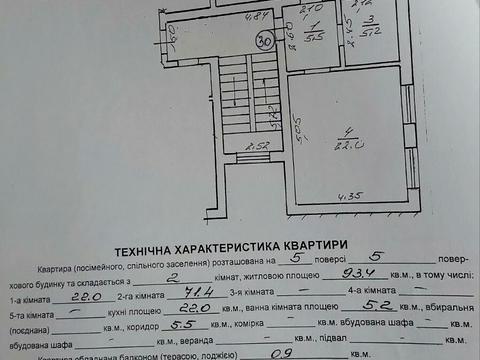 4.84
1.60
30
2.10
1
5.5
2.60
2.12
3
5.2
2.45
5.22
2.52
5.05
4
22.0
4.35
ТЕХНІЧНА ХАРАКТЕРИСТИКА КВАРТИРИ
Квартира (посімейного, спільного заселення) розташована на 5 поверсі 5 повер-
хового будинку та складається з 2 кімнат, житловою площею 93.4 кв.м., в тому числі:
1-а кімната 22.0 2-га кімната 71.4 3-я кімната — 4-а кімната —
5-та кімната — кухні площею 22.0 кв.м., ванна кімната площею 5.2 кв.м., вбиральня
(поєднана) кв.м., коридор 5.5 кв.м., комірка — кв.м., вбудована шафа — кв.м.
вбудована шафа — кв.м., веранда — кв.м., підвал — кв.м.
Квартира обладнана балконом (терасою, лоджією) 0.9 кв.м.